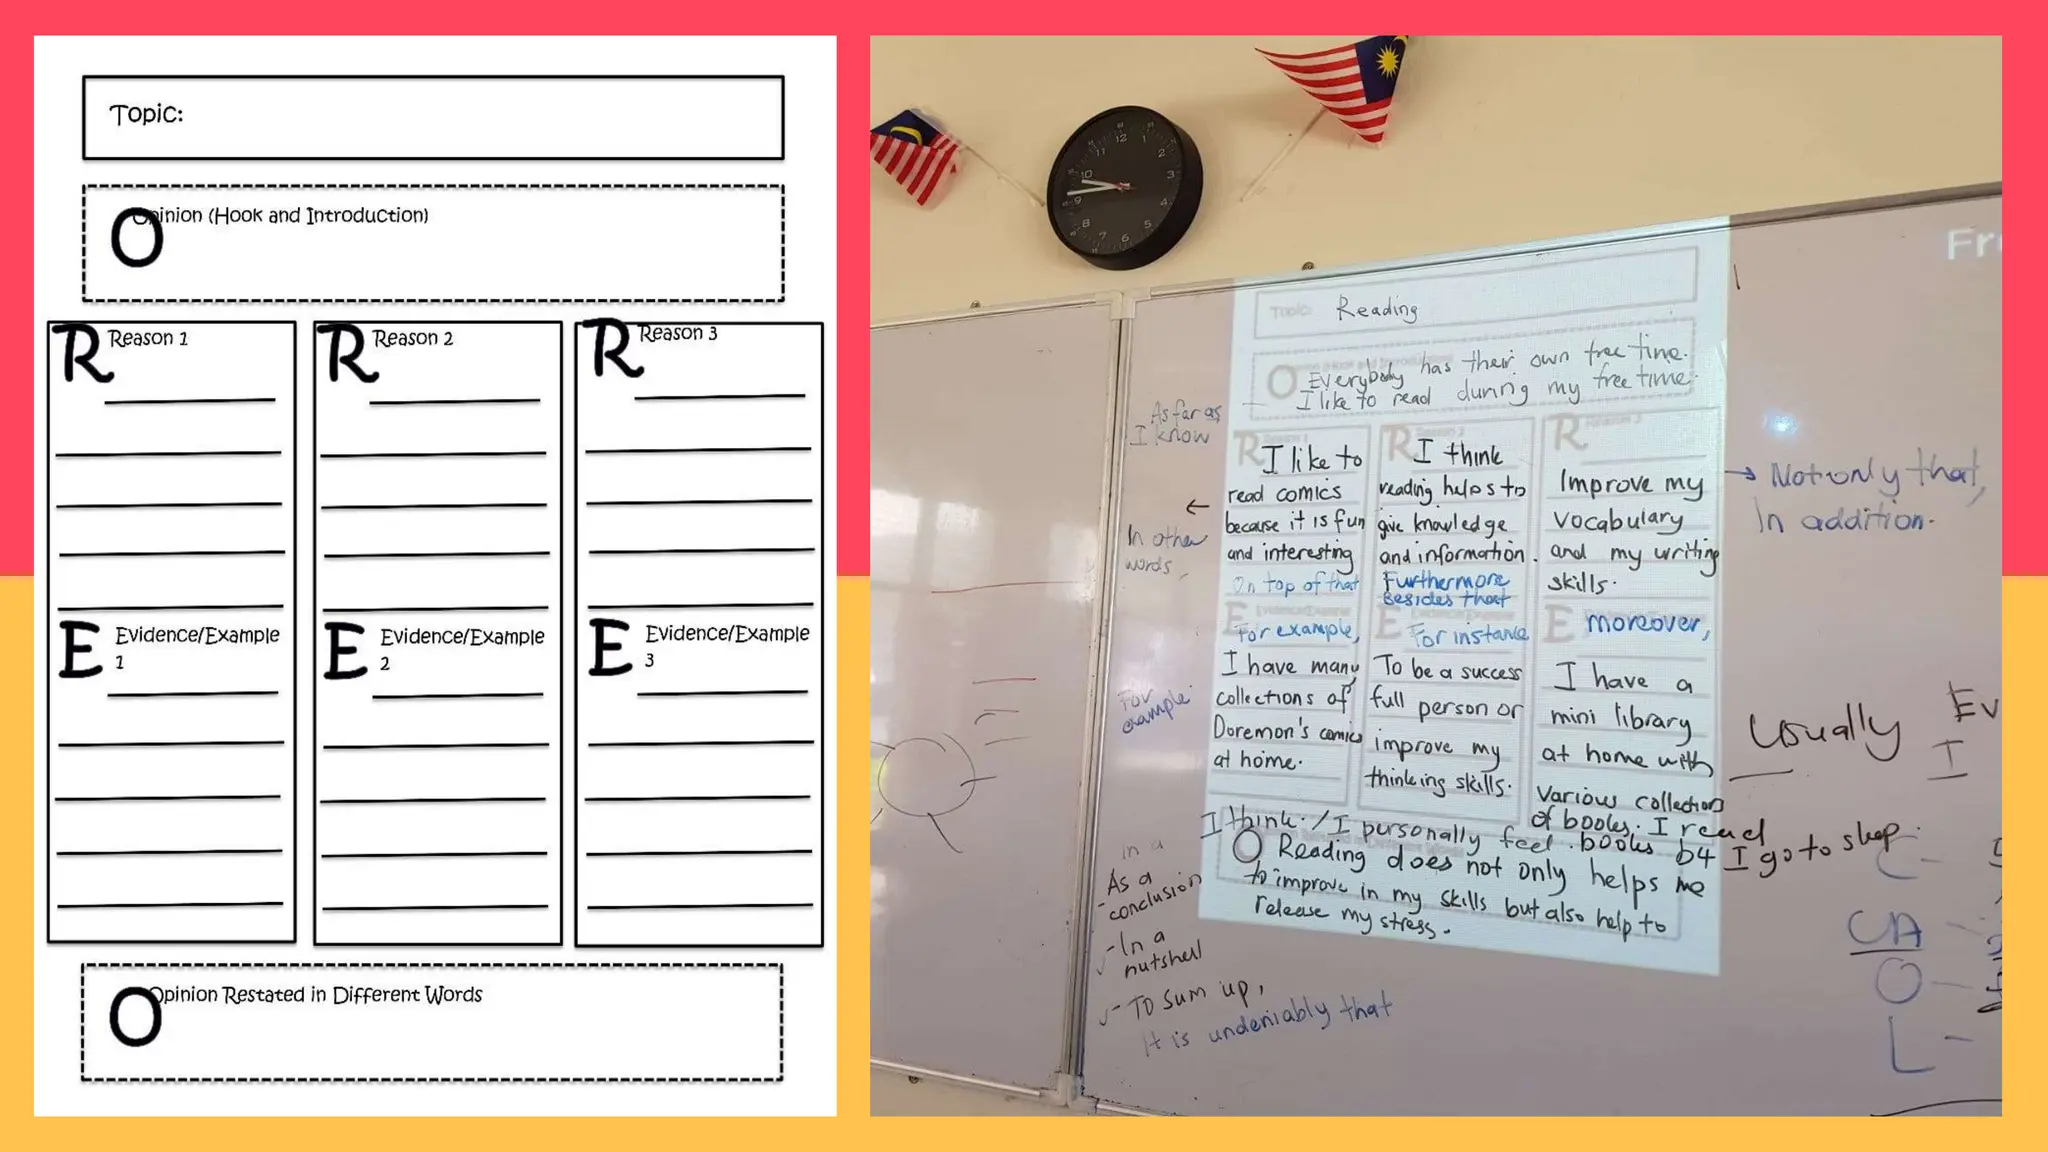 Topic:
Opinion (Hook and Introduction)
O
R Reason 1
R Reason 2
R Reason 3
E Evidence/Example
1
E Evidence/Example
2
E Evidence/Example
3
Opinion Restated in Different Words
O
Topic: Reading
O Everybody has their own free time.
I like to read during my free time.
As far as
I know
In other
words,
For
example
R I like to
read comics
because it is fun
and interesting
On top of that
E For example,
I have many
collections of
Doremon's comics
at home.
R I think
reading helps to
give knowledge
and information.
Furthermore
Besides that
E For instance
To be a success
full person or
improve my
thinking skills.
R Reason 3
Improve my
vocabulary
and my writing
skills.
E moreover,
I have a
mini library
at home with
various collections
of books. I read
books b4 I go to sleep.
→ Not only that,
In addition.
usually
Ev
I
I think. / I personally feel.
O Reading does not only helps me
to improve in my skills but also help to
release my stress.
In a
- As a
conclusion
- In a
nutshell
- To sum up,
It is undeniably that
Fr
C -
CA -
O -
L -
12
1
2
3
4
5
6
7
8
9
10
11